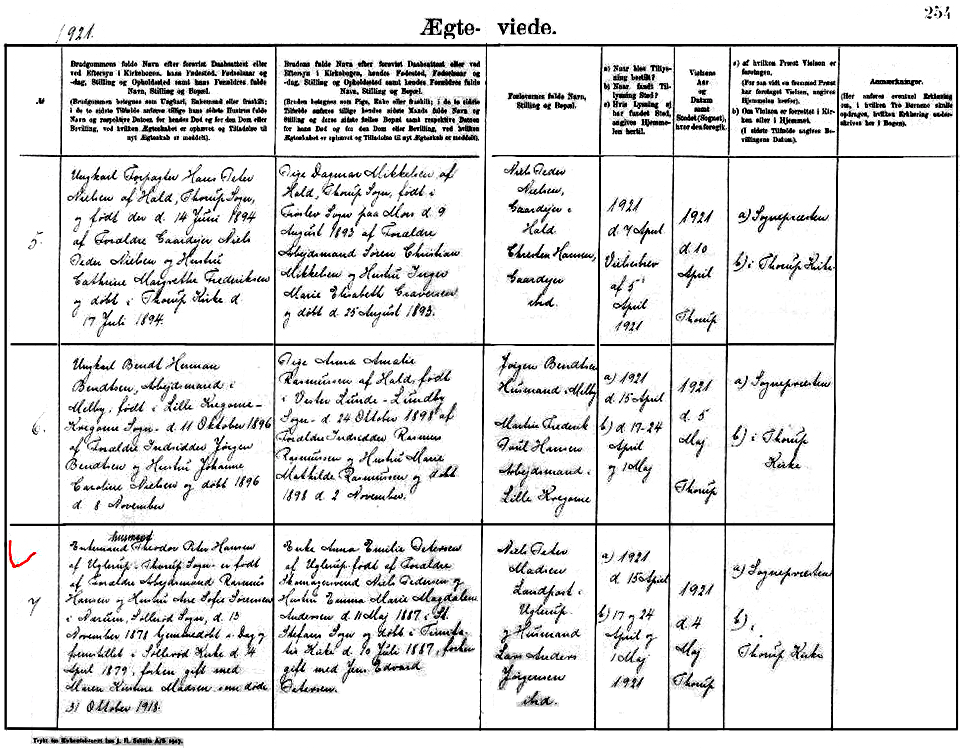 254
1921.
Ægte- viede.
№
Brudgommens fulde Navn efter forevist Daabsattest eller
ved Eftersyn i Kirkebogen, hans Fødested, Fødselsaar og
-dag, Stilling og Opholdssted samt hans Forældres fulde
Navn, Stilling og Bopæl.
(Brudgommen betegnes som Ungkarl, Enkemand eller fraskilt;
i de to sidste Tilfælde anføres tillige hans sidste Hustrus fulde
Navn og respektive Datum for hendes Død og for den Dom eller
Bevilling, ved hvilken Ægteskabet er ophævet og Tilladelse til
nyt Ægteskab er meddelt).
Brudens fulde Navn efter forevist Daabsattest eller
ved Eftersyn i Kirkebogen, hendes Fødested, Fødselsaar og
-dag, Stilling og Opholdssted samt hendes Forældres fulde
Navn, Stilling og Bopæl.
(Bruden betegnes som Pige, Enke eller fraskilt; i de to sidste
Tilfælde anføres tillige hendes sidste Mands fulde Navn og
Stilling og deres sidste fælles Bopæl samt respektive Datum
for hans Død og for den Dom eller Bevilling, ved hvilken
Ægteskabet er ophævet og Tilladelse til nyt Ægteskab er meddelt).
Forlovernes fulde Navn,
Stilling og Bopæl.
a) Naar blev Tillys-
ning bestilt?
b) Naar fandt Til-
lysning Sted?
c) Hvis Lysning ej
har fundet Sted,
angives Hjemme-
len hertil.
Vielsens
Aar
og
Datum
samt
Stedet (Sognet),
hvor den foregik.
a) af hvilken Præst Vielsen er
foretagen.
(For saa vidt en fremmed Præst
har foretaget Vielsen, angives
Hjemmelen herfor).
b) Om Vielsen er forrettet i Kir-
ken eller i Hjemmet.
(I sidste Tilfælde angives Be-
villingens Datum).
Anmærkninger.
(Her anføres eventuel Erklæring
om, i hvilken Tro Børnene skulle
opdrages, hvilken Erklæring under-
skrives her i Bogen).
5.
Ungkarl Forpagter Hans Peter
Nielsen af Hald, Thorup Sogn,
og født der d. 14 Juni 1894
af Forældre Gaardejer Niels
Peder Nielsen og Hustru
Cathrine Margrethe Frederiksen
og døbt i Thorup Kirke d.
17 Juli 1894.
Pige Dagmar Mikkelsen af
Hald, Thorup Sogn, født i
Frøslev Sogn paa Mors d. 9
August 1893 af Forældre
Arbejdsmand Sören Christian
Mikkelsen og Hustru Inger
Marie Elisabeth Graversen
og døbt d. 25 August 1893.
Niels Peder
Nielsen,
Gaardejer i
Hald
Christen Hansen,
Gaardejer
ibd.
1921
d. 7 April
Vielsebrev
af 5'
April
1921
1921
d. 10
April
Thorup
a) Sognepræsten
b) i Thorup Kirke
6.
Ungkarl Bendt Herman
Bendtsen, Arbejdsmand i
Melby, født i Lille Kregome-
Kregome Sogn d. 11 Oktober 1896
af Forældre Indsidder Jørgen
Bendtsen og Hustru Johanne
Caroline Nielsen og døbt 1896
d. 8 November
Pige Anna Amalie
Rasmussen af Hald, født
i Vester Lunde-Lundby
Sogn d. 24 Oktober 1898 af
Forældre Indsidder Rasmus
Rasmussen og Hustru Marie
Mathilde Rasmussen og døbt
1898 d. 2 November.
Jørgen Bendtsen
Husmand i Melby
Martin Frederik
Poul Hansen
Arbejdsmand i
Lille Kregome
a) 1921
d. 15 April
b) d. 17-24
April
og 1 Maj
1921
d. 5
Maj
Thorup
a) Sognepræsten
b) i Thorup
Kirke
7
Husmand
Enkemand Theodor Peter Hansen
af Uglerup Thorup Sogn er født
af Forældre Arbejdsmand Rasmus
Hansen og Hustru Ane Sofie Sörensen
i Nærum, Söllerød Sogn, d. 13
November 1878 hjemmedöbt s. Dag og
fremstillet i Söllerød Kirke d. 4
April 1879, forhen gift med
Maren Kirstine Madsen som døde
31 Oktober 1918.
Enke Anna Emilie Petersen
af Uglerup født af Forældre
Skomagersvend Niels Pedersen og
Hustru Emma Marie Magdalene
Andersen d. 11 Maj 1887 i St.
Stefans Sogn og döbt i Trinita-
tis Kirke d. 10 Juli 1887, forhen
gift med Jens Edvard
Petersen.
Niels Peter
Madsen
Landpost i
Uglerup
og Husmand
Lars Anders
Jørgensen
ibd.
a) 1921
d. 15 April
b) 17 og 24
April og
1 Maj
1921
1921
d. 4
Maj
Thorup
a) Sognepræsten
b) i
Thorup Kirke